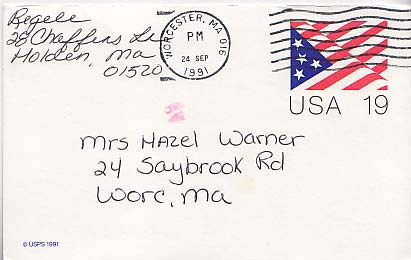 Regele
28 Chaffins Ln
Holden, Ma
01520
WORCESTER, MA 016
PM
24 SEP
1991
USA 19
Mrs Hazel Warner
24 Saybrook Rd
Worc, Ma
© USPS 1991